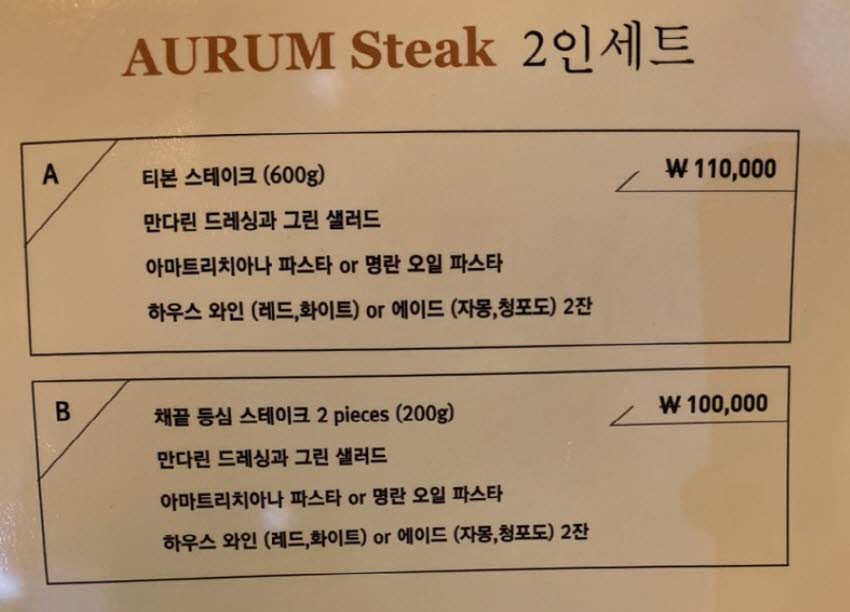 AURUM Steak 2인세트
A
티본 스테이크 (600g)
₩ 110,000
만다린 드레싱과 그린 샐러드
아마트리치아나 파스타 or 명란 오일 파스타
하우스 와인 (레드,화이트) or 에이드 (자몽,청포도) 2잔
B
채끝 등심 스테이크 2 pieces (200g)
₩ 100,000
만다린 드레싱과 그린 샐러드
아마트리치아나 파스타 or 명란 오일 파스타
하우스 와인 (레드,화이트) or 에이드 (자몽,청포도) 2잔